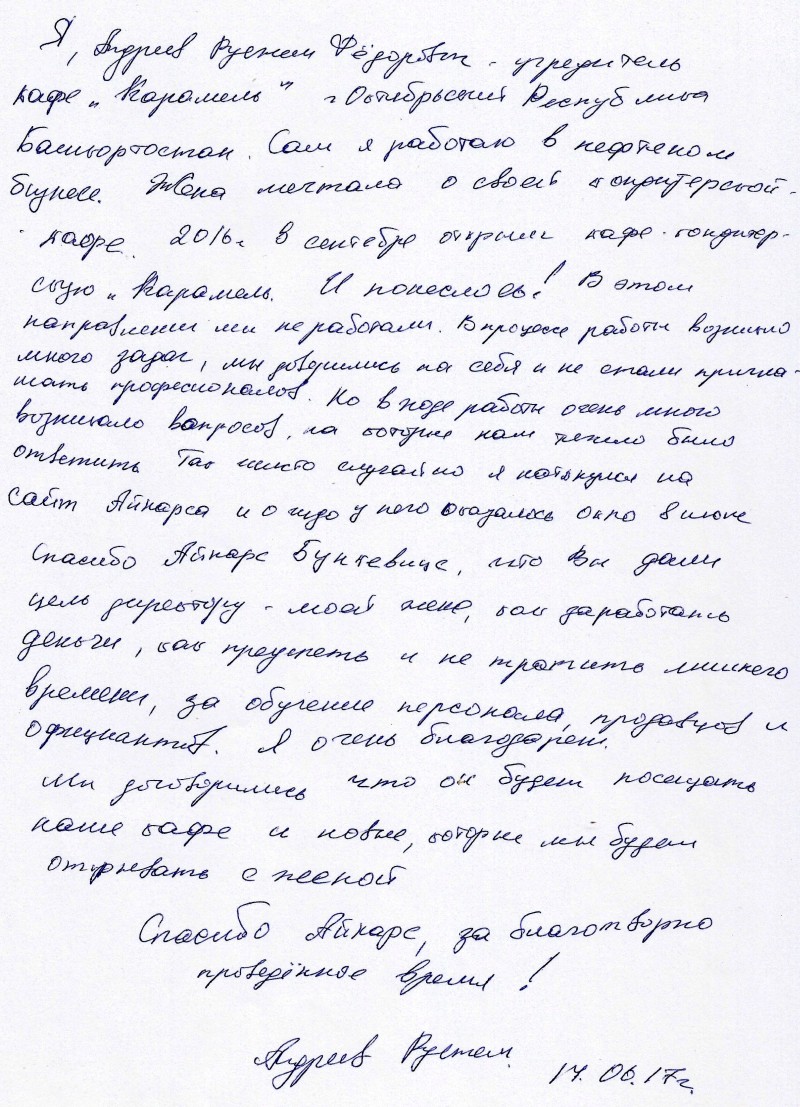 Я, Андреев Рустем Фёдорович - учредитель
кафе „Карамель" г. Октябрьский Республика
Башкортостан. Сам я работаю в нефтяном
бизнесе. Жена мечтала о своей кондитерской -
кафе. 2016г. в сентябре открыли кафе-кондитер-
скую „Карамель. И понеслось! В этом
направлении мы не работали. В процессе работы возникло
много задач, мы доверились на себя и не стали пригла-
шать професионалов. Но в ходе работы очень много
возникало вопросов, на которые нам тяжело было
ответить Так чисто случайно я наткнулся на
сайт Айнарса и о чудо у него оказалось окно в июне
Спасибо Айнарс Бункевицс, что Вы дали
цель директору - моей жене, как заработать
деньги, как преуспеть и не тратить лишнего
времени, за обучение персонала, продавцов и
официантов. Я очень благодарен.
Мы договорились что он будет посещать
наше кафе и новые, которые мы будем
открывать с женой
Спасибо Айнарс, за благотворно
проведённое время!
Андреев Рустем. 14.06.17г.